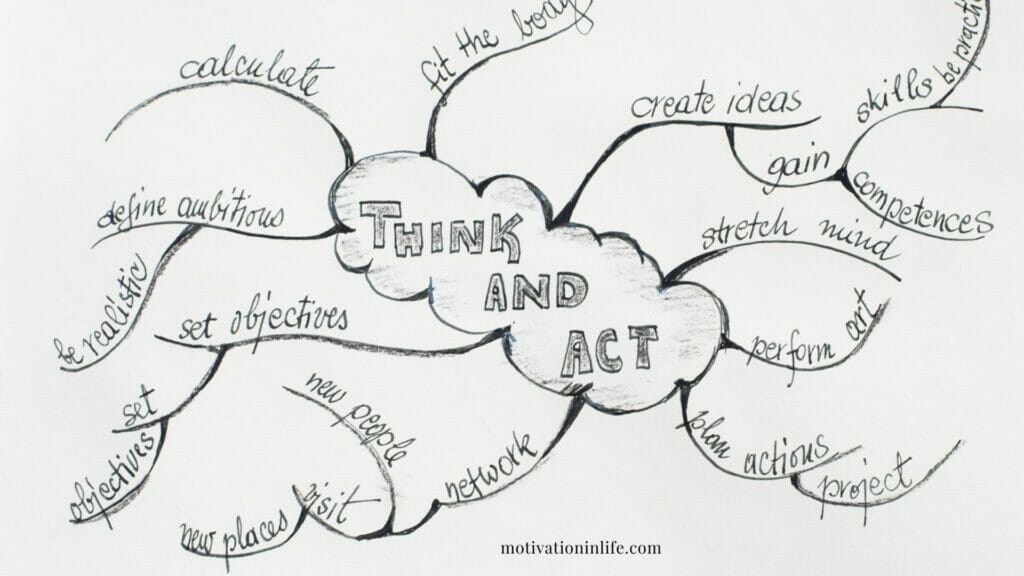 calculate
fit the body
create ideas
gain
skills
be practi
competences
define ambitious
be realistic
THINK
AND
ACT
stretch mind
set objectives
set
objectives
perform art
plan actions
project
network
new people
visit
new places
motivationinlife.com